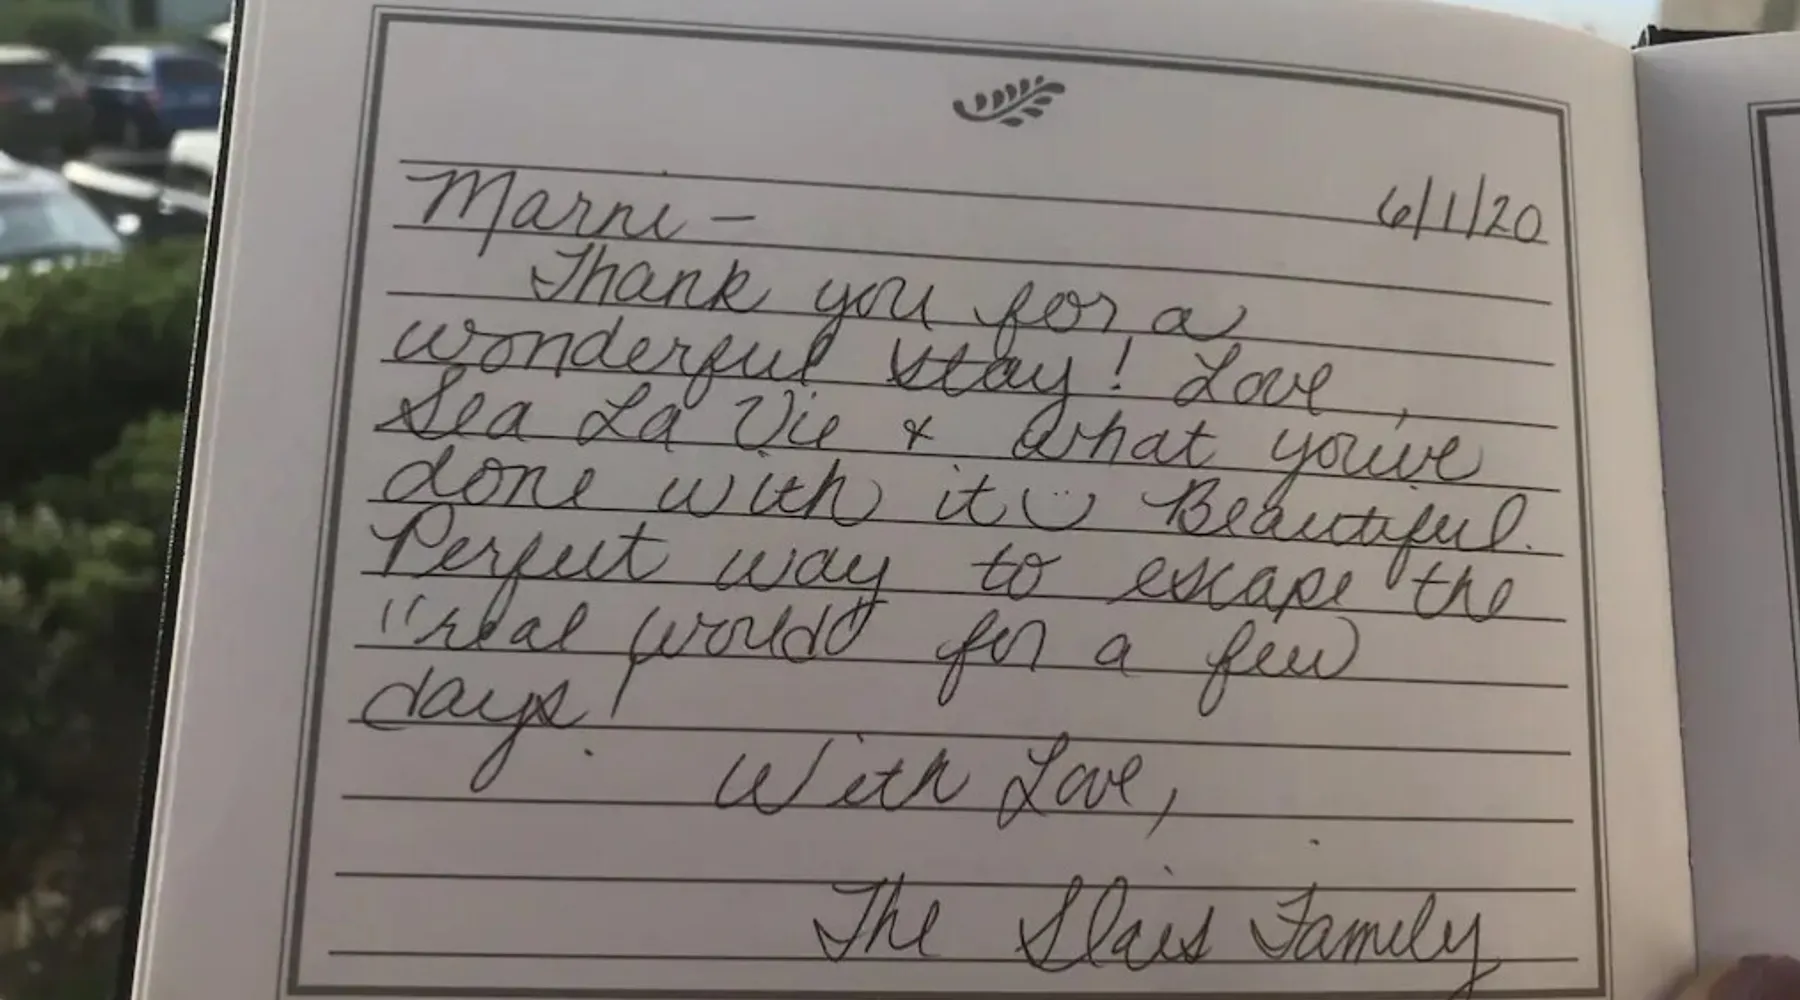 Marni - 6/1/20
Thank you for a
wonderful stay! Love
Sea La Vie & what you've
done with it Beautiful.
Perfect way to escape the
"real world" for a few
days!
With Love,
The Slais Family